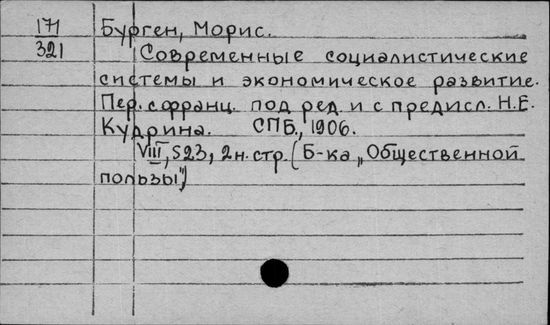 171 Бурген, Морис.
321 Современные социалистические
системы и экономическое развитие.
Пер. с франц. под ред. и с предисл. Н.Е.
Кудрина. СПБ., 1906.
VIII, 523, 2 н. стр. (Б-ка „Общественной
пользы")